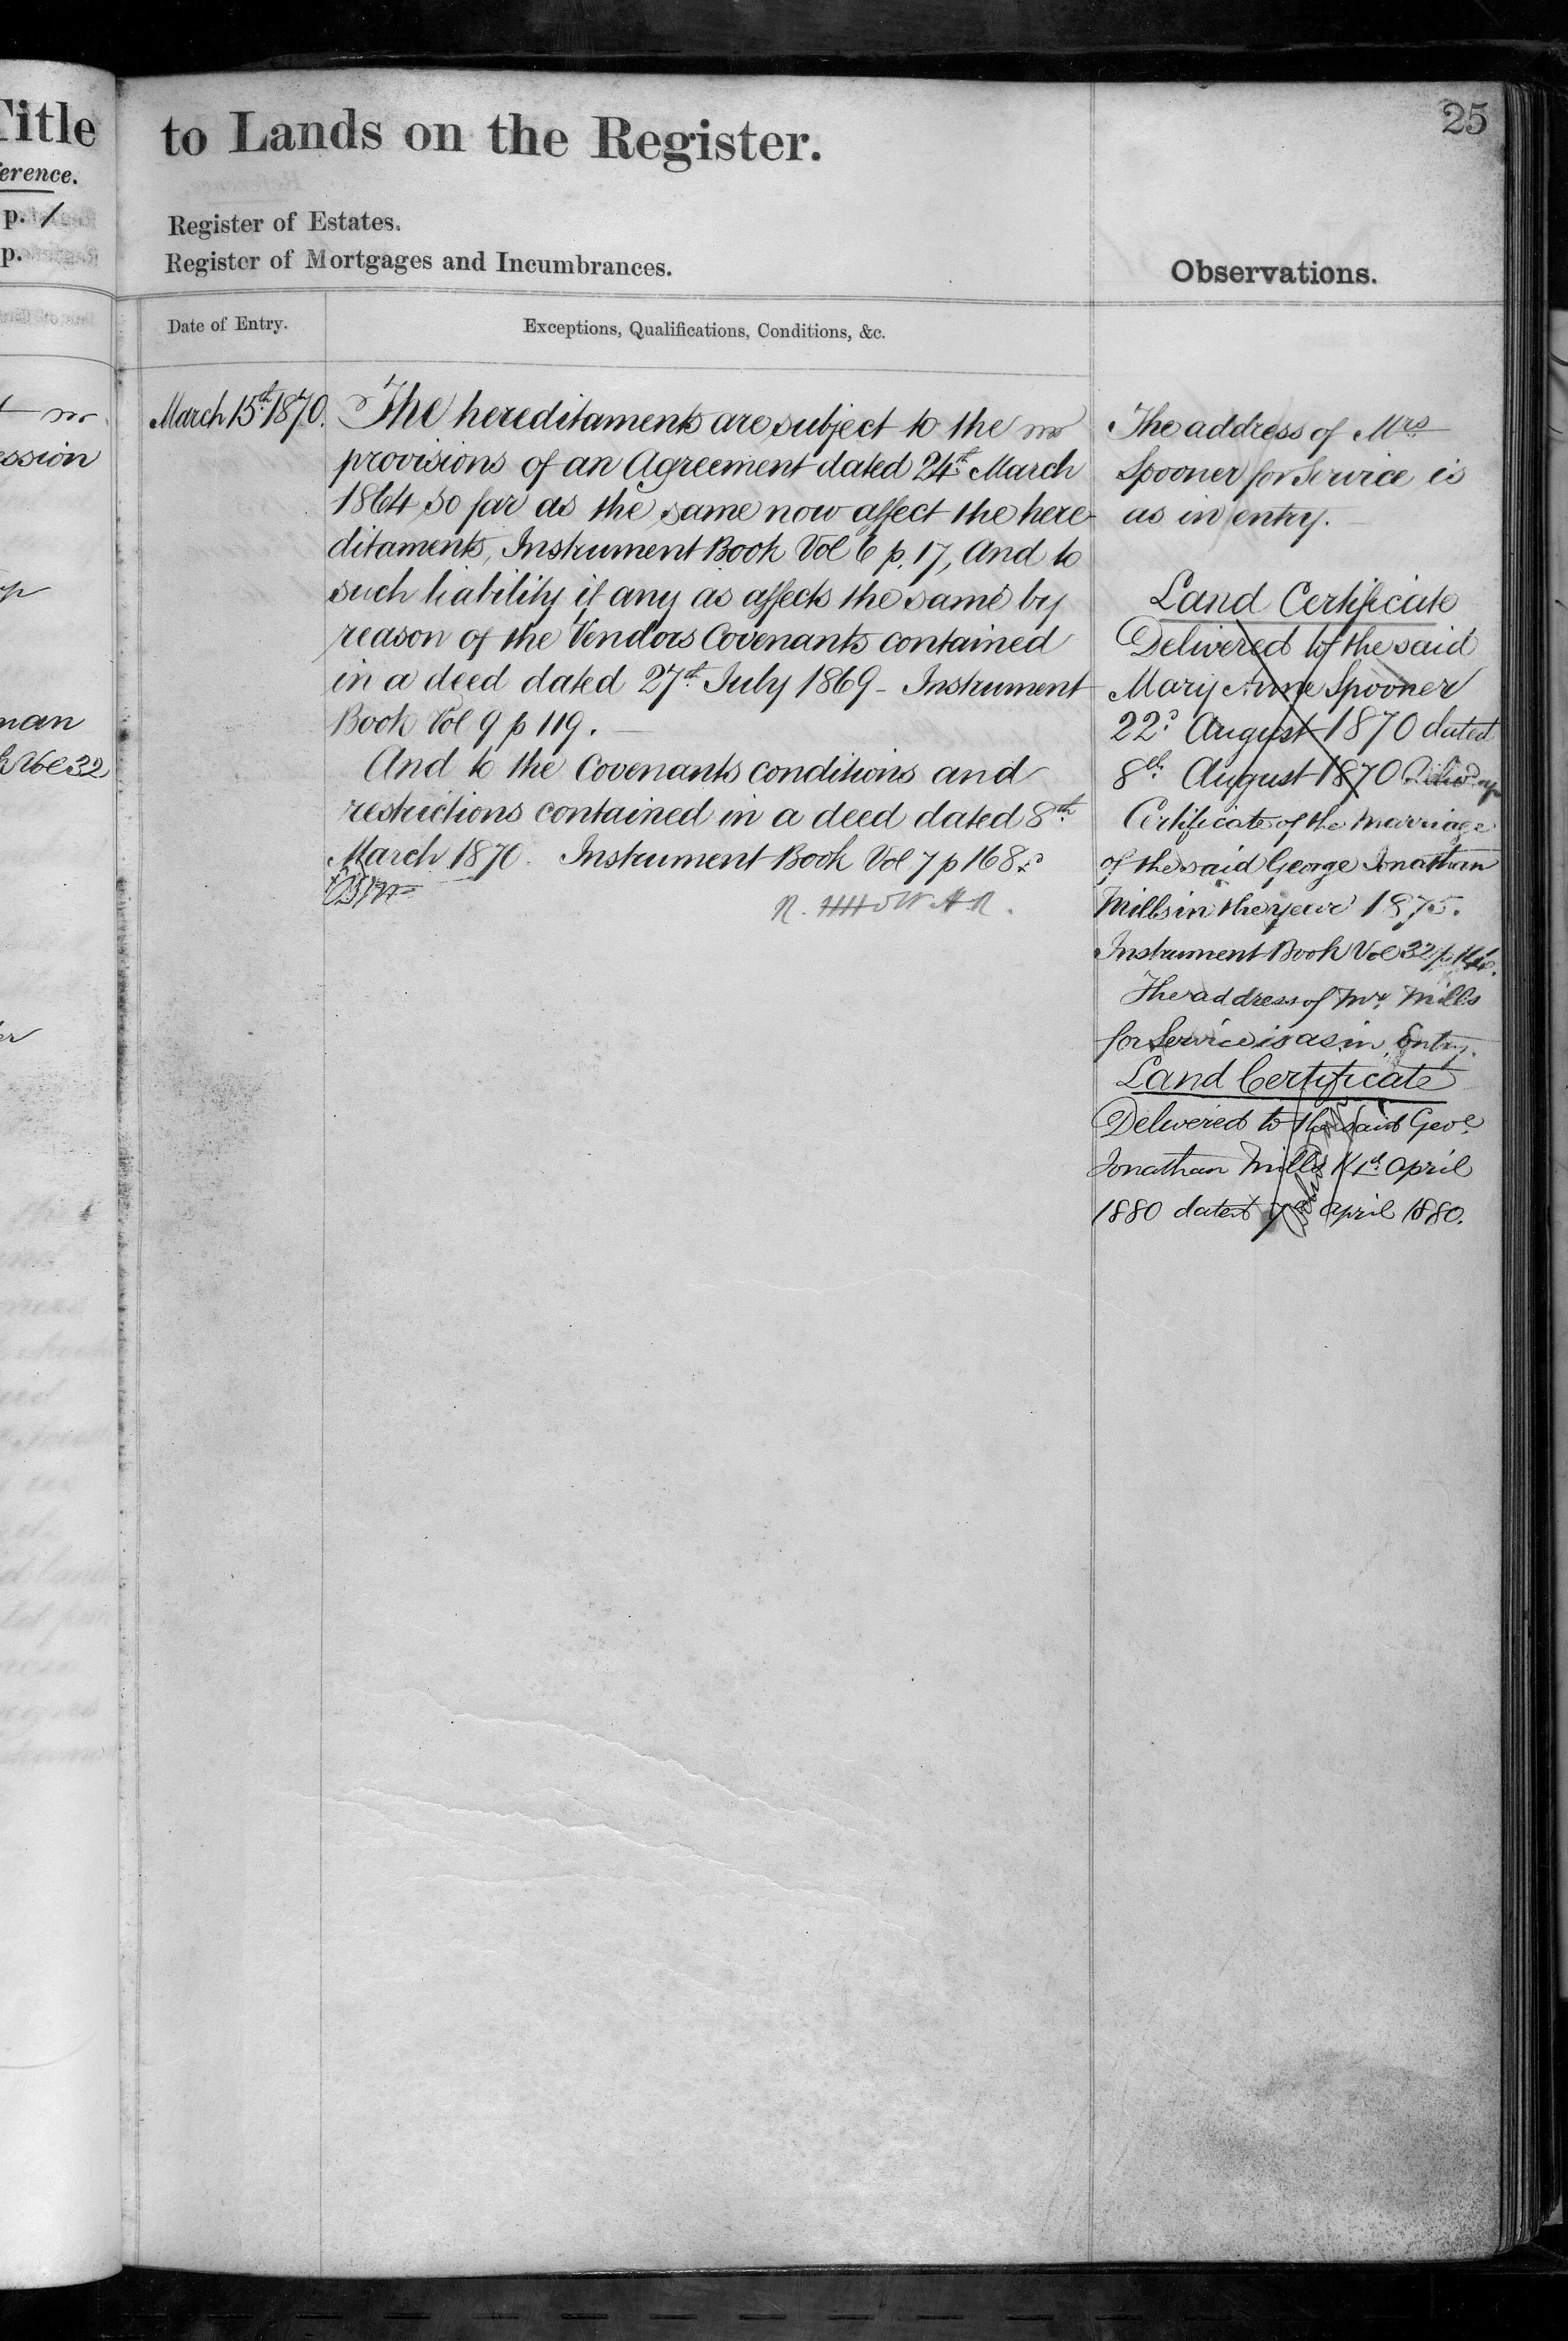 Title
erence.
p. /
p.
ession
man
Vol 32
25
to Lands on the Register.
Register of Estates.
Register of Mortgages and Incumbrances.
Observations.
Date of Entry.
Exceptions, Qualifications, Conditions, &c.
March 15th 1870.
The hereditaments are subject to the
provisions of an Agreement dated 24th March
1864 so far as the same now affect the here-
ditaments, Instrument Book Vol 6 p. 17, And to
such liability if any as affects the same by
reason of the Vendors Covenants contained
in a deed dated 27th July 1869 - Instrument
Book Vol 9 p 119.
And to the Covenants conditions and
restrictions contained in a deed dated 8th
March 1870. Instrument Book Vol 7 p 168.
The address of Mrs
Spooner for Service is
as in entry.
Land Certificate
Delivered to the said
Mary Anne Spooner
22d August 1870 dated
8th August 1870
Certificate of the Marriage
of the said George Jonathan
Mills in the year 1875.
Instrument Book Vol 32 p
The address of Mr Mills
for Service is as in Entry.
Land Certificate
Delivered to the said Geoe
Jonathan Mills April
1880 dated 7 April 1880.